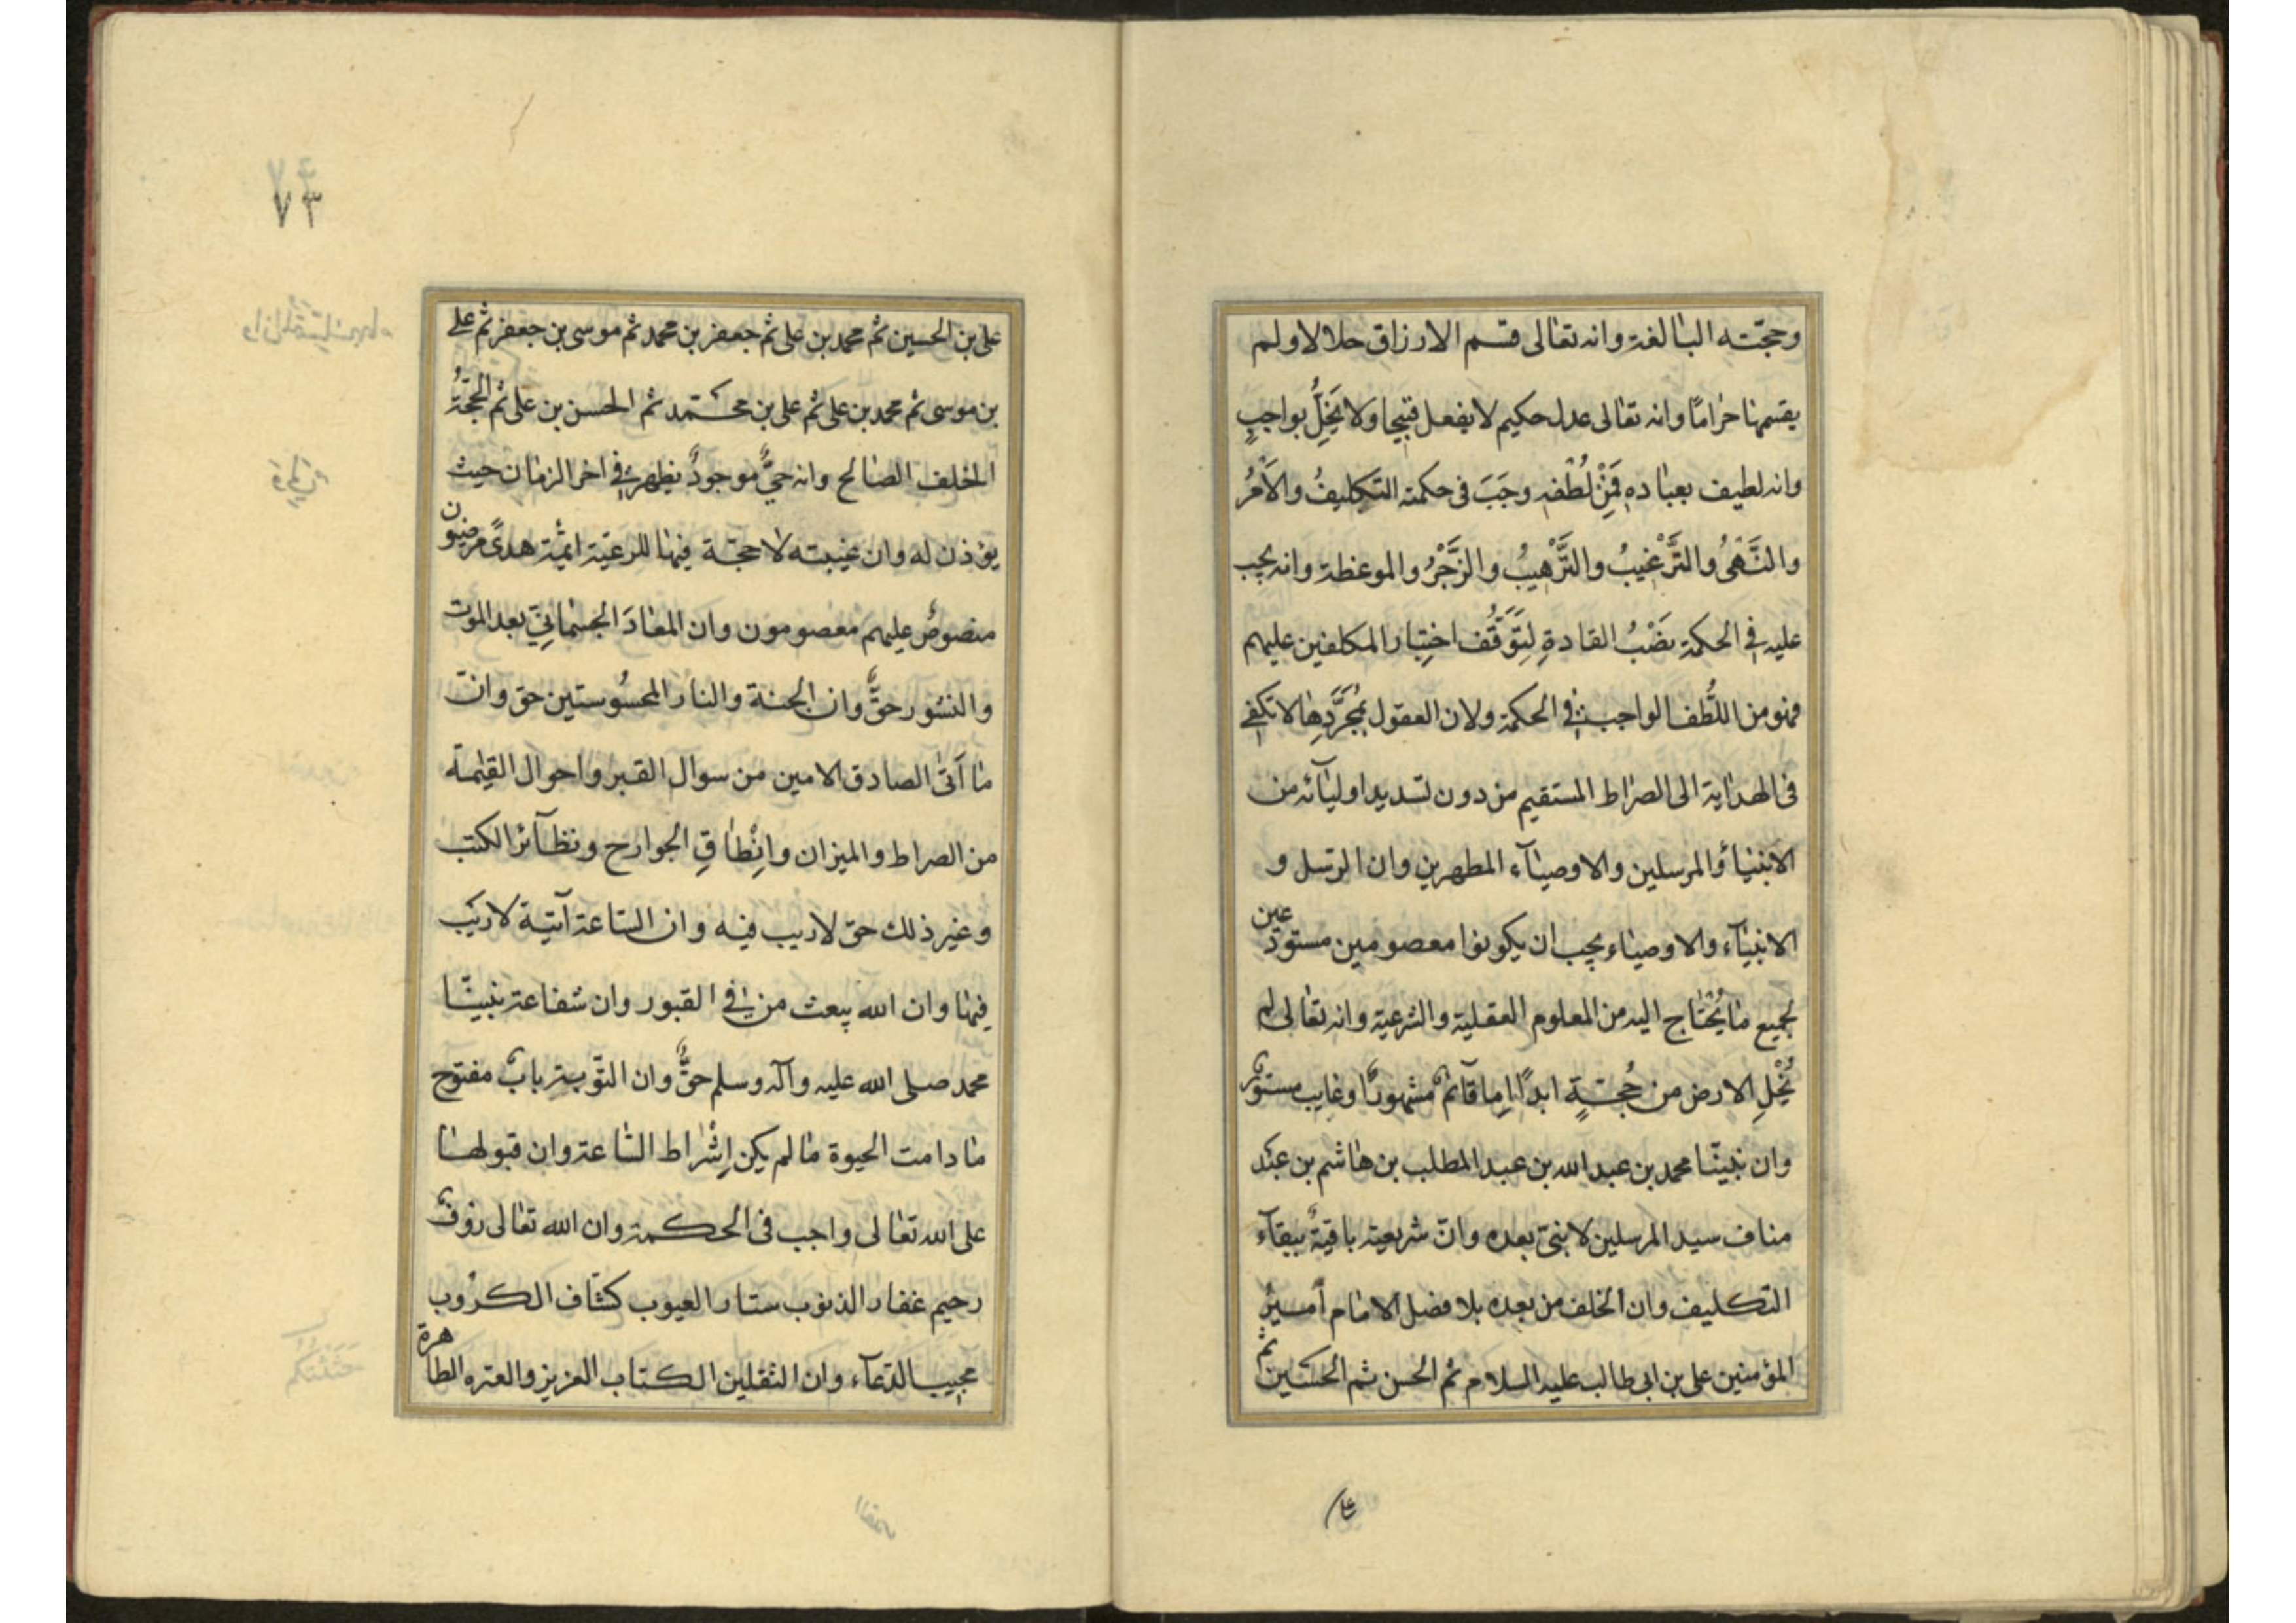 وحجّته البالغة وانه تعالى قسم الارزاق حلالا ولم
يقسمها حرامًا وانه تعالى عدل حكيم لا يفعل قبيحا ولا يَخِلُّ بواجبٍ
وانه لطيف بعباده فَمِنْ لُطْفه وجَبَ فى حكمته التكليفُ والاَمْرُ
والنَّهْىُ والتَّرْغيبُ والتَّرْهيبُ والزَّجْرُ والموعظة وانه يجب
عليه فى الحكمة نَصْبُ القادةِ لِتَوَقُّف اختِيار المكلفين عليهم
فهو من اللُّطف الواجب فى الحكمة ولان العقول بمُجَرَّدِها لا تكفى
فى الهداية الى الصراط المستقيم من دون تسديد اوليآئه من
الانبياء والمرسلين والاوصيآء المطهرين وان الرّسل و
الانبيآء والاوصياء يجب ان يكونوا معصومين مستودعين
لجميع ما يُحْتاج اليه من العلوم العقلية والشرعية وانه تعالى لم
يُخْلِ الارض من حُجّةٍ ابدًا اِما قآئم مشهورًا وغايب مستور
وان نبينّا محمد بن عبد الله بن عبد المطلب بن هاشم بن عبد
مناف سيد المرسلين لا نبىّ بعده وانّ شريعته باقيةٌ ببقآء
التكليف وان الخلف من بعده بلا فضل الامام أمير
المؤمنين على بن ابى طالب عليه السلام ثم الحسن ثم الحسين ثم
على
٧٣
على بن الحسين ثم محمد بن على ثم جعفر بن محمد ثم موسى بن جعفر ثم على
بن موسى ثم محمد بن على ثم على بن محمد ثم الحسن بن على ثم الحجّةُ
الخلف الصالح وانه حىٌّ موجودٌ يظهر فى اخر الزمان حيث
يؤذن له وان غيبته لا حجّة فيها للرعيّة ائمّة هدىً مرضيون
منصوصٌ عليهم معصومون وان المعادَ الجسمانِىَّ بعد الموت
والنشور حقٌّ وان الجنة والنار المحسُوستين حق وانّ
ما اَتىٰ الصادق الامين من سوال القبر واحوال القيٰمة
من الصراط والميزان وانْطاقِ الجوارح وتطآئر الكتب
وغير ذلك حق لا ريب فيه وان الساعة آتية لا ريب
فيها وان الله يبعث من فى القبور وان شفاعة نبينّا
محمد صلى الله عليه وآله وسلم حقٌّ وان التّوبة بابٌ مفتوح
ما دامت الحيوة ما لم يكن اِشْراط الساعة وان قبولها
على الله تعالى واجب فى الحكمة وان الله تعالى رؤفٌ
رحيم غفار الذنوب ستار العيوب كشّاف الكرُوب
مجيب الدّعآء وان الثقلين الكتاب العزيز والعتره الطاهرة